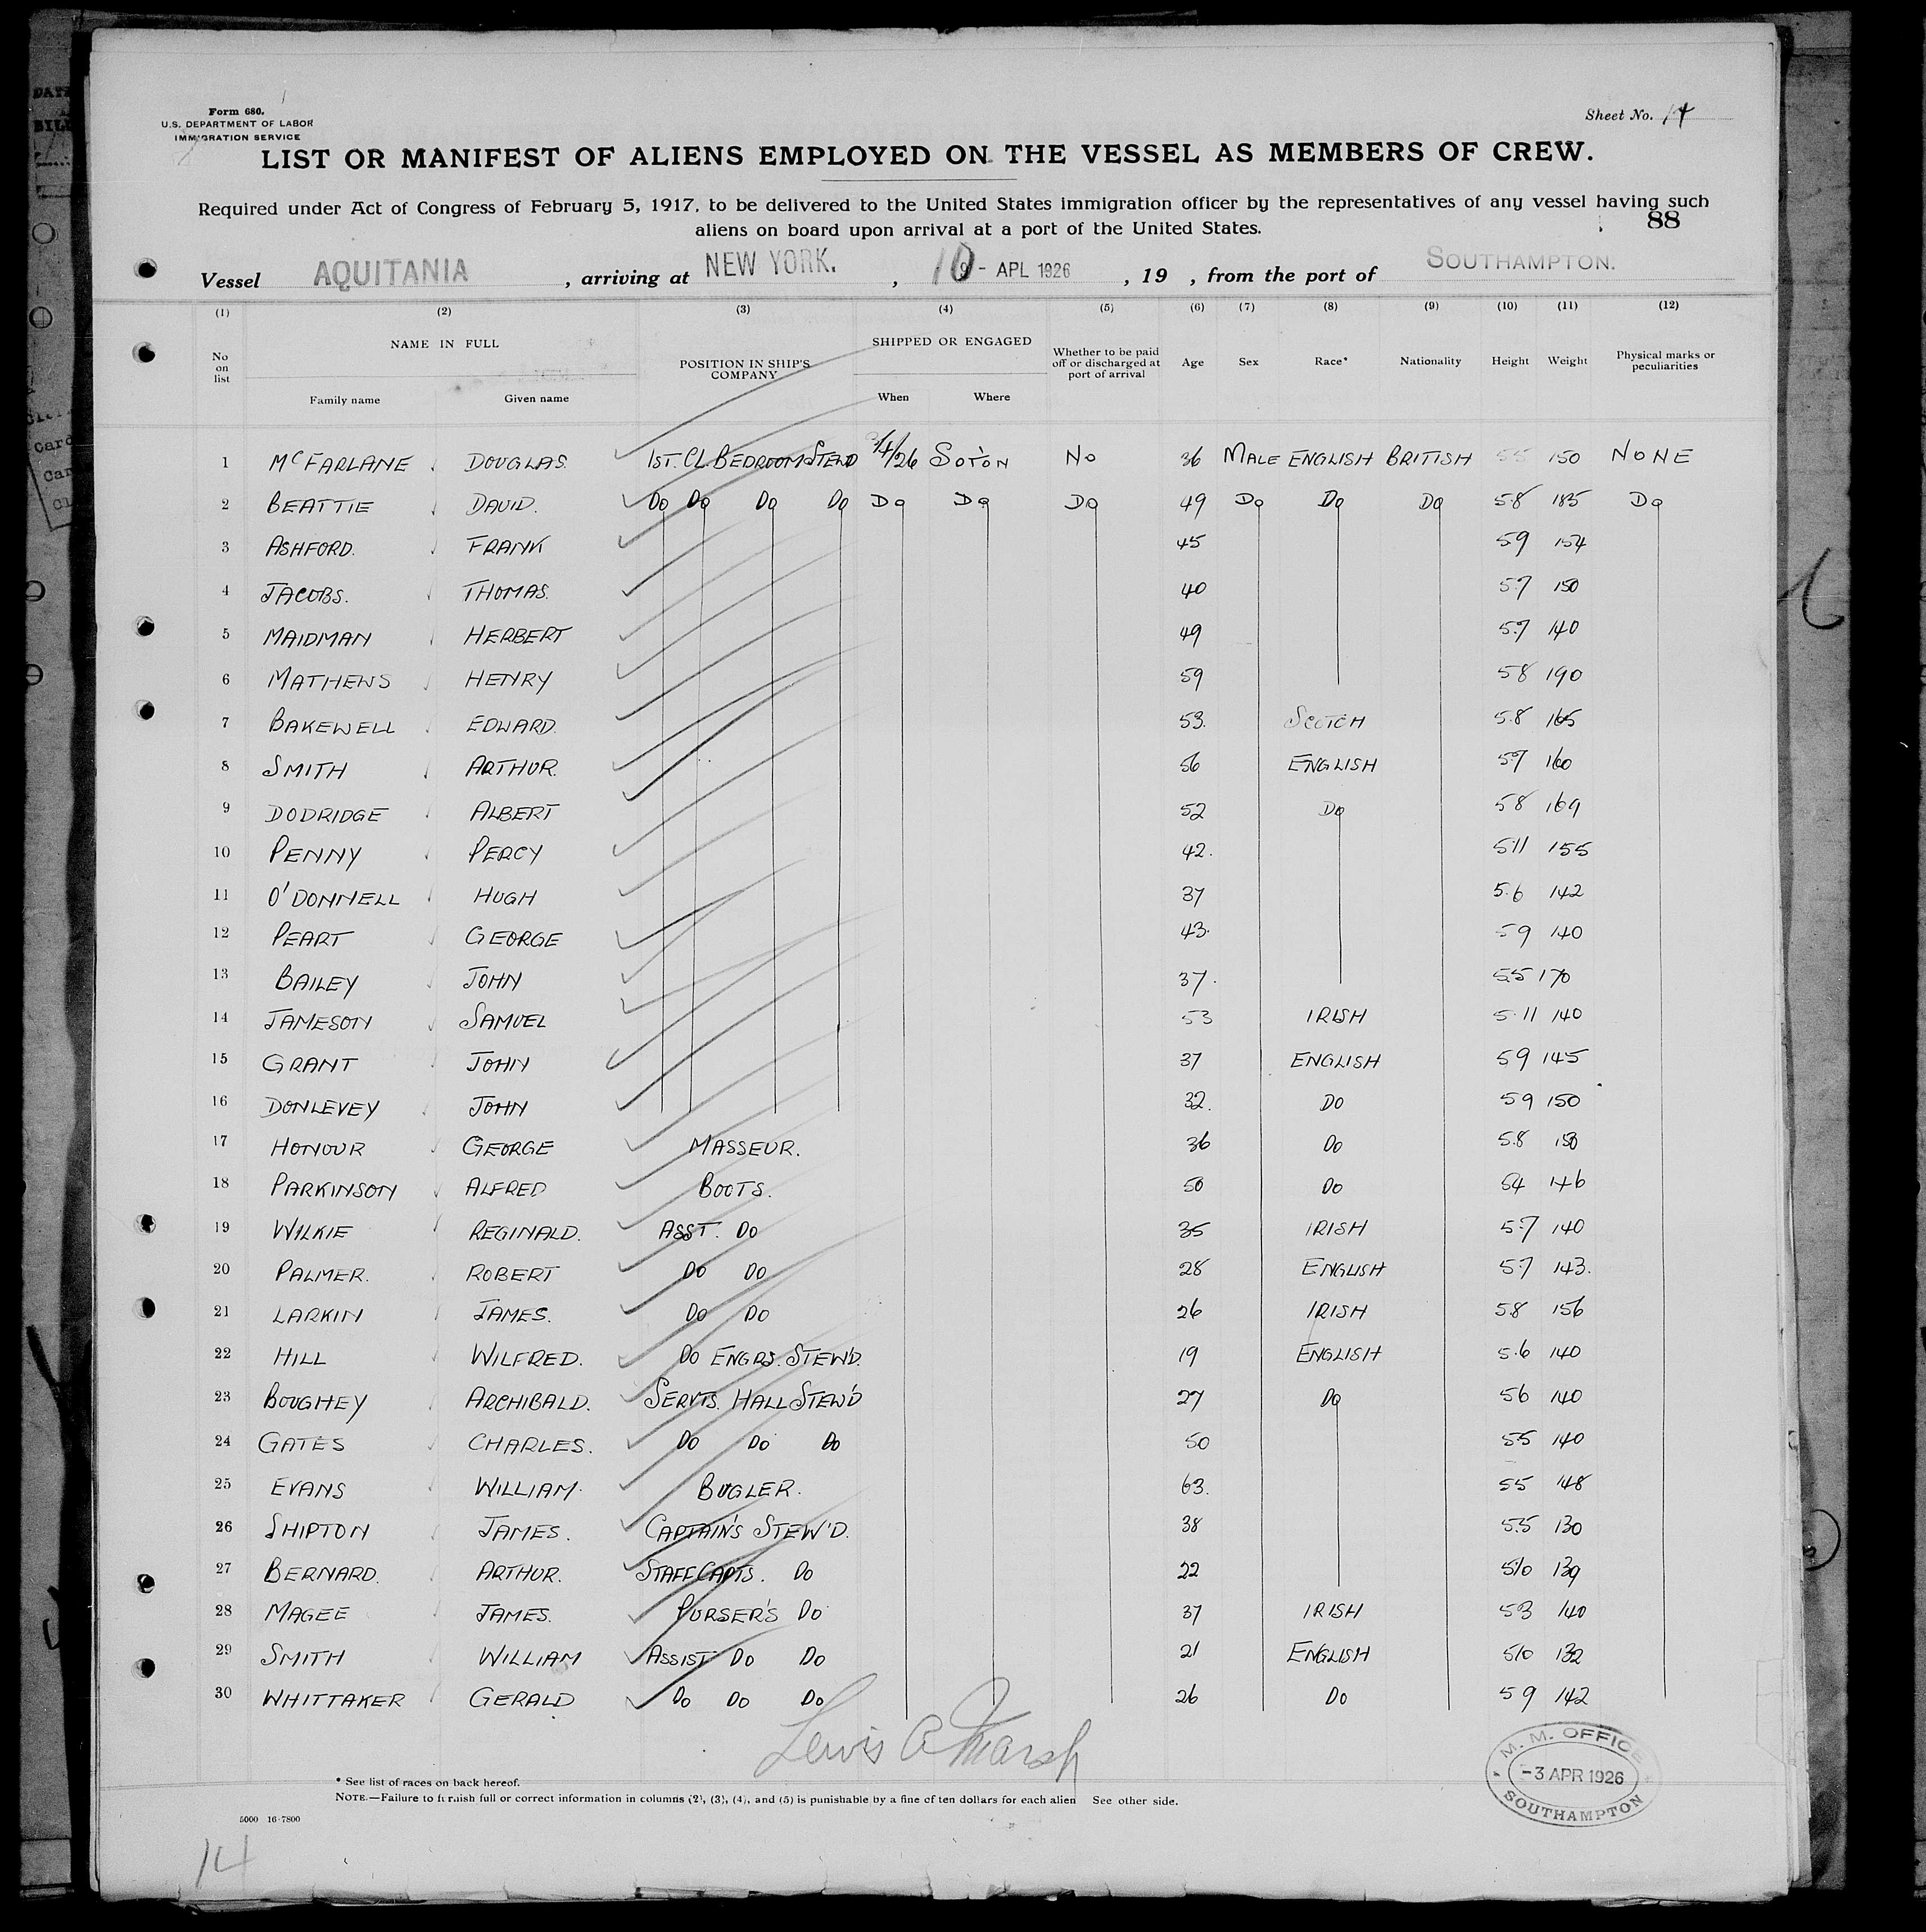 Form 680.
U.S. DEPARTMENT OF LABOR
IMMIGRATION SERVICE
Sheet No. 14
LIST OR MANIFEST OF ALIENS EMPLOYED ON THE VESSEL AS MEMBERS OF CREW.
Required under Act of Congress of February 5, 1917, to be delivered to the United States immigration officer by the representatives of any vessel having such
aliens on board upon arrival at a port of the United States.
88
Vessel AQUITANIA , arriving at NEW YORK. , 10 - APL 1926 , 19 , from the port of SOUTHAMPTON.
(1) (2) (3) (4) (5) (6) (7) (8) (9) (10) (11) (12)
No on list NAME IN FULL Family name Given name POSITION IN SHIP'S COMPANY SHIPPED OR ENGAGED When Where Whether to be paid off or discharged at port of arrival Age Sex Race* Nationality Height Weight Physical marks or peculiarities
1 McFARLANE DOUGLAS. 1ST. CL. BEDROOM STEWD 3/4/26 SOTON No 36 MALE ENGLISH BRITISH 55 150 NONE
2 BEATTIE DAVID. Do Do Do Do Do Do Do 49 Do Do Do 5.8 185 Do
3 ASHFORD. FRANK 45 5.9 154
4 JACOBS. THOMAS. 40 5.7 150
5 MAIDMAN HERBERT 49 5.7 140
6 MATHEWS HENRY 59 58 190
7 BAKEWELL EDWARD. 53. SCOTCH 5.8 165
8 SMITH ARTHUR. 56 ENGLISH 57 160
9 DODRIDGE ALBERT 52 Do 58 169
10 PENNY PERCY 42. 511 155
11 O'DONNELL HUGH 37 5.6 142
12 PEART GEORGE 43. 59 140
13 BAILEY JOHN 37. 5.5 170
14 JAMESON SAMUEL 53 IRISH 5.11 140
15 GRANT JOHN 37 ENGLISH 59 145
16 DONLEVEY JOHN 32. DO 59 150
17 HONOUR GEORGE MASSEUR. 36 Do 5.8
18 PARKINSON ALFRED BOOTS. 50 Do 54 146
19 WILKIE REGINALD. ASST. Do 35 IRISH 5.7 140
20 PALMER. ROBERT Do Do 28 ENGLISH 5.7 143.
21 LARKIN JAMES. Do Do 26 IRISH 58 156
22 HILL WILFRED. Do ENGRS. STEW'D. 19 ENGLISH 5.6 140
23 BOUGHEY ARCHIBALD. SERVTS. HALL STEW'D 27 Do 56 140
24 GATES CHARLES. Do Do Do 50 55 140
25 EVANS WILLIAM. BUGLER. 63. 55 148
26 SHIPTON JAMES. CAPTAIN'S STEW'D. 38 5.5 130
27 BERNARD. ARTHUR. STAFF CAPTS. Do 22 5.10 139
28 MAGEE JAMES. PURSER'S Do 37 IRISH 53 140
29 SMITH WILLIAM ASSIST Do Do 21 ENGLISH 510 132
30 WHITTAKER GERALD Do Do Do 26 Do 59 142
Lewis A Marsh
M. M. OFFICE
-3 APR 1926
SOUTHAMPTON
* See list of races on back hereof.
NOTE.—Failure to furnish full or correct information in columns (2), (3), (4), and (5) is punishable by a fine of ten dollars for each alien See other side.
5000 16-7800
14